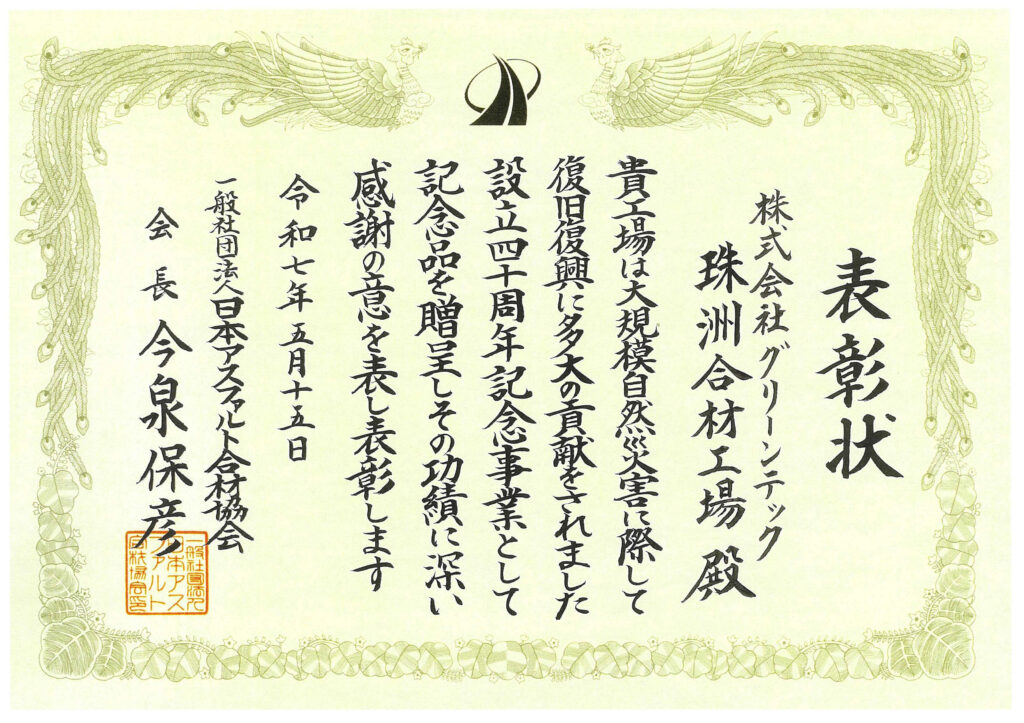 表彰状
株式会社グリーンテック
珠洲合材工場 殿
貴工場は大規模自然災害に際して
復旧復興に多大の貢献をされました
設立四十周年記念事業として
記念品を贈呈しその功績に深い
感謝の意を表し表彰します
令和七年五月十五日
一般社団法人日本アスファルト合材協会
会長 今泉保彦
一般社団法人
日本アス
ファルト
合材協会印